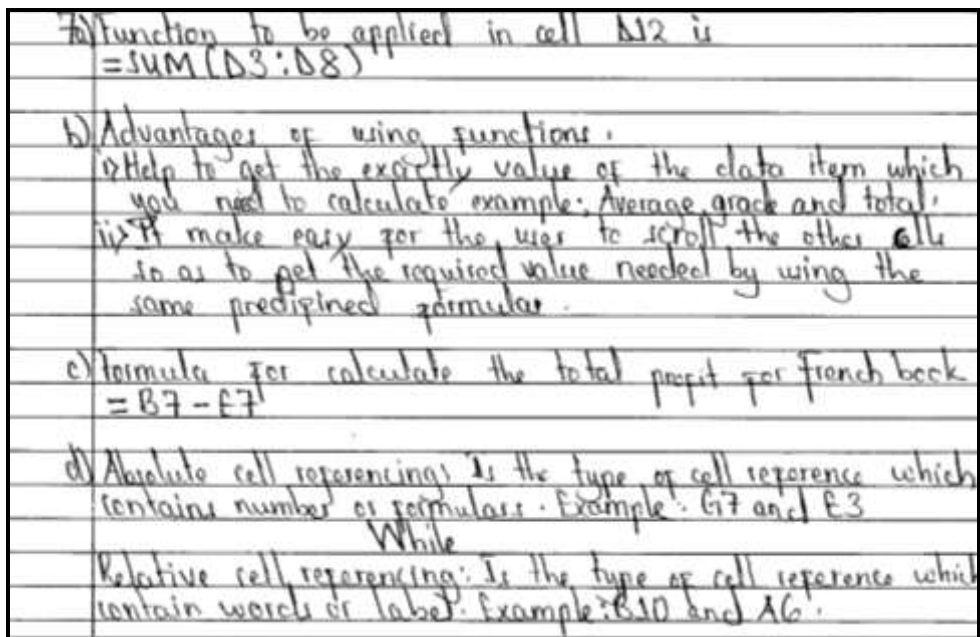 7a) Function to be applied in cell D12 is
=SUM(D3:D8)
b) Advantages of using functions.
i) Help to get the exactly value of the data item which
you need to calculate example: Average, grade and total.
ii) It make easy for the user to scroll the other cells
so as to get the required value needed by using the
same predifined formular.
c) Formula for calculate the total profit for French book
= B7 - E7
d) Absolute cell referencing: Is the type of cell reference which
contains number or formulars. Example: G7 and E3
While
Relative cell referencing: Is the type of cell reference which
contain words or label. Example: B10 and A6.